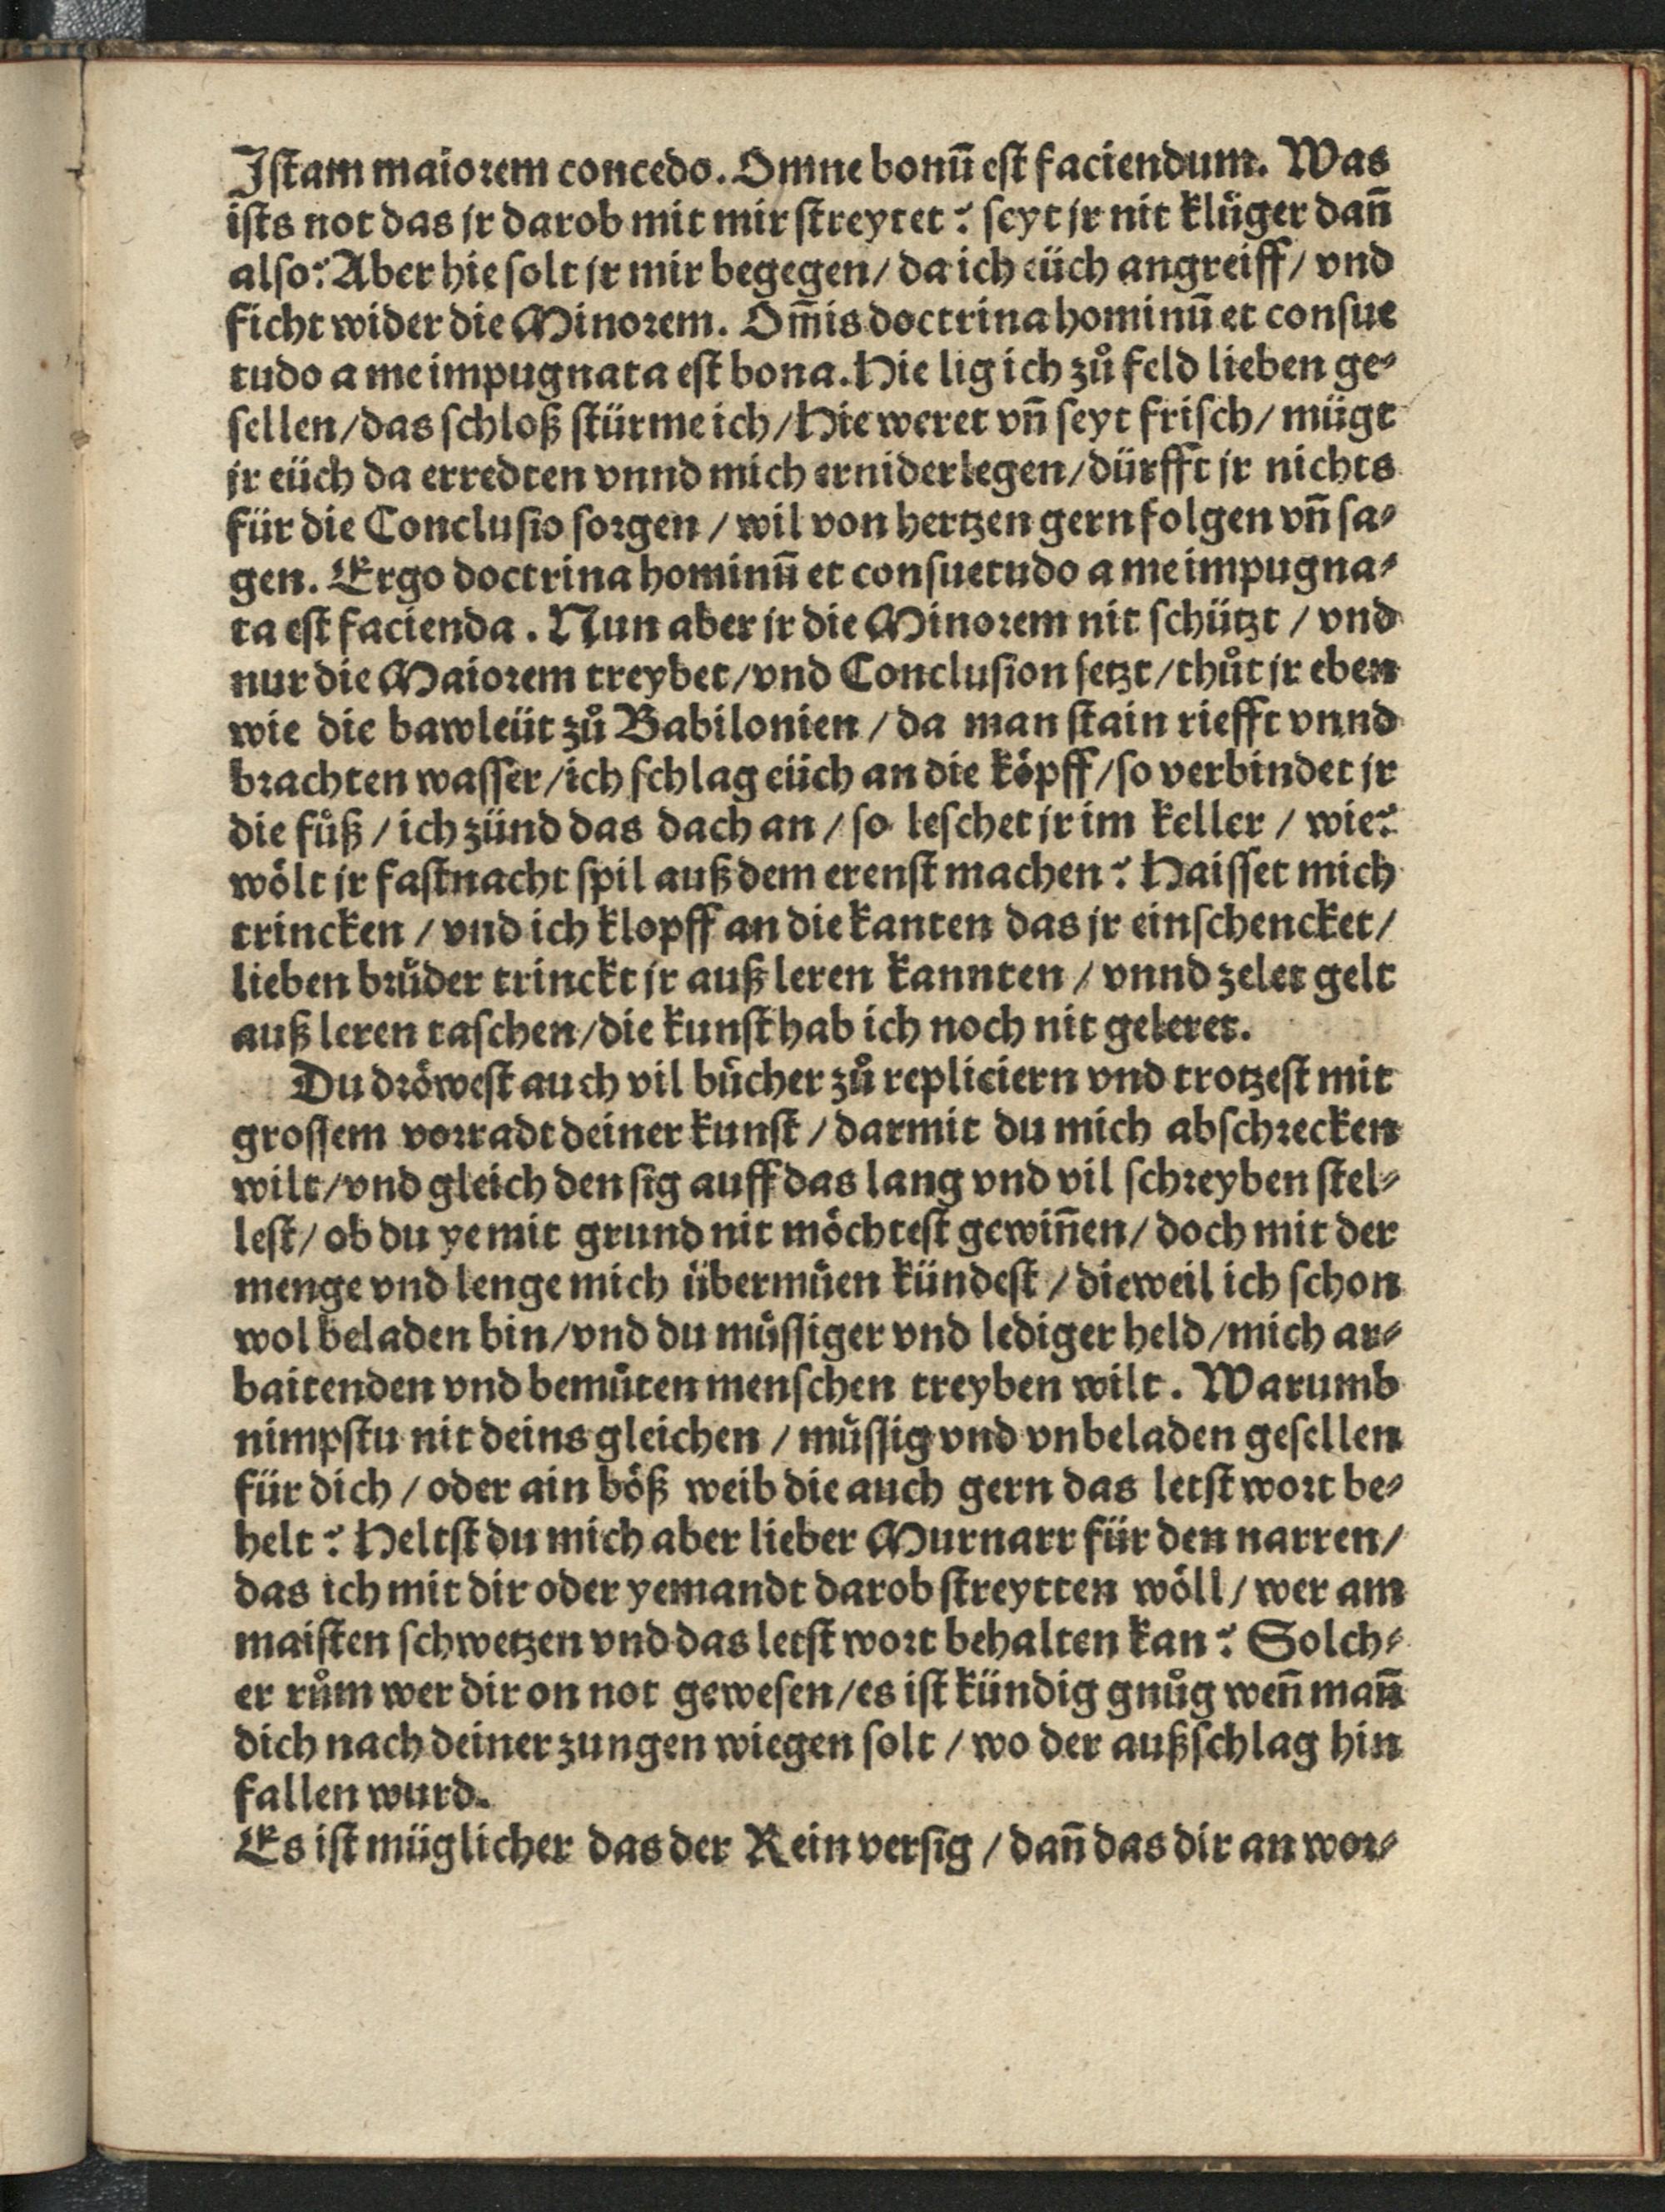 Iſtam maiorem concedo. Omne bonū eſt faciendum. Was
iſts not das jr darob mit mir ſtreytet? ſeyt jr nit klüger dañ
alſo? Aber hie ſolt jr mir begegen/ da ich eüch angreiff/ vnd
ficht wider die Minorem. Om̄is doctrina hominū et conſue
tudo a me impugnata eſt bona. Hie lig ich zů feld lieben ge⸗
ſellen/das ſchloß ſtürme ich/Hie weret vñ ſeyt friſch/ mügt
jr eüch da erredten vnnd mich erniderlegen/dürfft jr nichts
für die Concluſio ſorgen / wil von hertzen gern folgen vñ ſa⸗
gen. Ergo doctrina hominū et conſuetudo a me impugna⸗
ta eſt facienda. Nun aber jr die Minorem nit ſchützt / vnd
nur die Maiorem treybet/vnd Concluſion ſetzt/thůt jr eben
wie die bawleüt zů Babilonien / da man ſtain riefft vnnd
brachten waſſer/ich ſchlag eüch an die köpff/ſo verbindet jr
die fůß / ich zünd das dach an / ſo leſchet jr im keller / wie?
wölt jr faſtnacht ſpil auß dem erenſt machen? Haiſſet mich
trincken / vnd ich klopff an die kanten das jr einſchencket/
lieben brůder trinckt jr auß leren kannten / vnnd zelet gelt
auß leren taſchen/die kunſt hab ich noch nit geleret.
Du dröweſt auch vil bůcher zů repliciern vnd trotzeſt mit
groſſem vorradt deiner kunſt / darmit du mich abſchrecken
wilt/vnd gleich den ſig auff das lang vnd vil ſchreyben ſtel⸗
leſt/ ob du ye mit grund nit möchteſt gewiñen/ doch mit der
menge vnd lenge mich übermůen kündeſt / dieweil ich ſchon
wol beladen bin/vnd du můſſiger vnd lediger held/mich ar⸗
baitenden vnd bemůten menſchen treyben wilt. Warumb
nimpſtu nit deins gleichen / můſſig vnd vnbeladen geſellen
für dich / oder ain böß weib die auch gern das letſt wort be⸗
helt? Heltſt du mich aber lieber Murnarr für den narren/
das ich mit dir oder yemandt darob ſtreytten wöll/ wer am
maiſten ſchwetzen vnd das letſt wort behalten kan? Solch⸗
er rům wer dir on not geweſen/es iſt kündig gnůg weñ mañ
dich nach deiner zungen wiegen ſolt / wo der außſchlag hin
fallen wurd.
Es iſt müglicher das der Rein verſig / dañ das dir an wor⸗